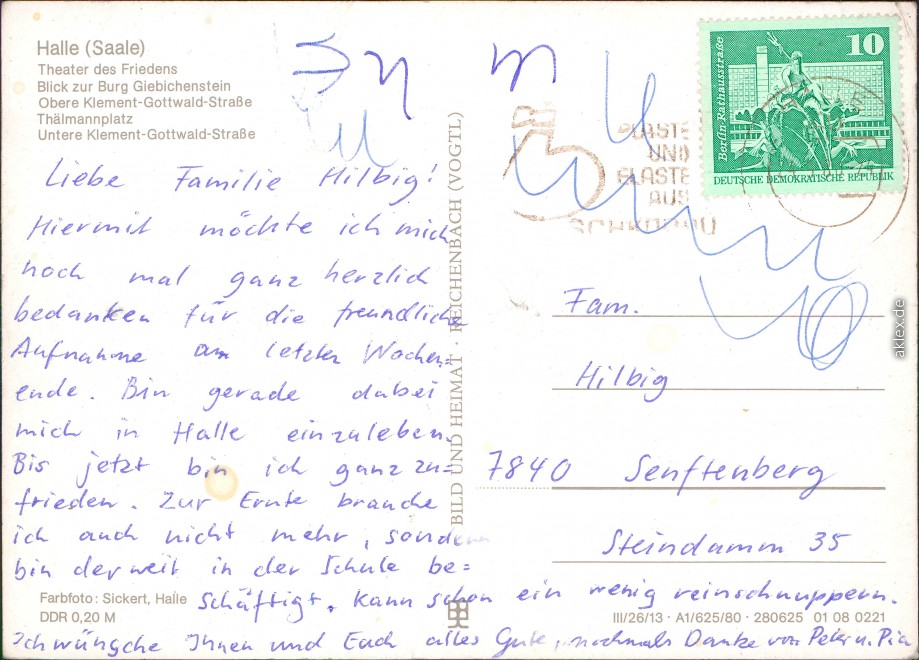 Halle (Saale)
Theater des Friedens
Blick zur Burg Giebichenstein
Obere Klement-Gottwald-Straße
Thälmannplatz
Untere Klement-Gottwald-Straße
Liebe Familie Hilbig!
Hiermit möchte ich mich
noch mal ganz herzlich
bedanken für die freundliche
Aufnahme am letzten Wochen=
ende. Bin gerade dabei
mich in Halle einzuleben.
Bis jetzt bin ich ganz zu=
frieden. Zur Ernte brauche
ich auch nicht mehr, sondern
bin derweil in der Schule be=
schäftigt. Kann schon ein wenig reinschnuppern.
Ich wüngche Ihnen und Euch alles Gute, nochmals Danke von Peter u. Pia
Farbfoto: Sickert, Halle
DDR 0,20 M
BILD UND HEIMAT · REICHENBACH (VOGTL)
10
Berlin-Rathausstraße
DEUTSCHE DEMOKRATISCHE REPUBLIK
PLASTE
UND
ELASTE
AUS
SCHKOPAU
Fam.
Hilbig
7840 Senftenberg
Steindamm 35
III/26/13 · A1/625/80 · 280625 01 08 0221
aklex.de